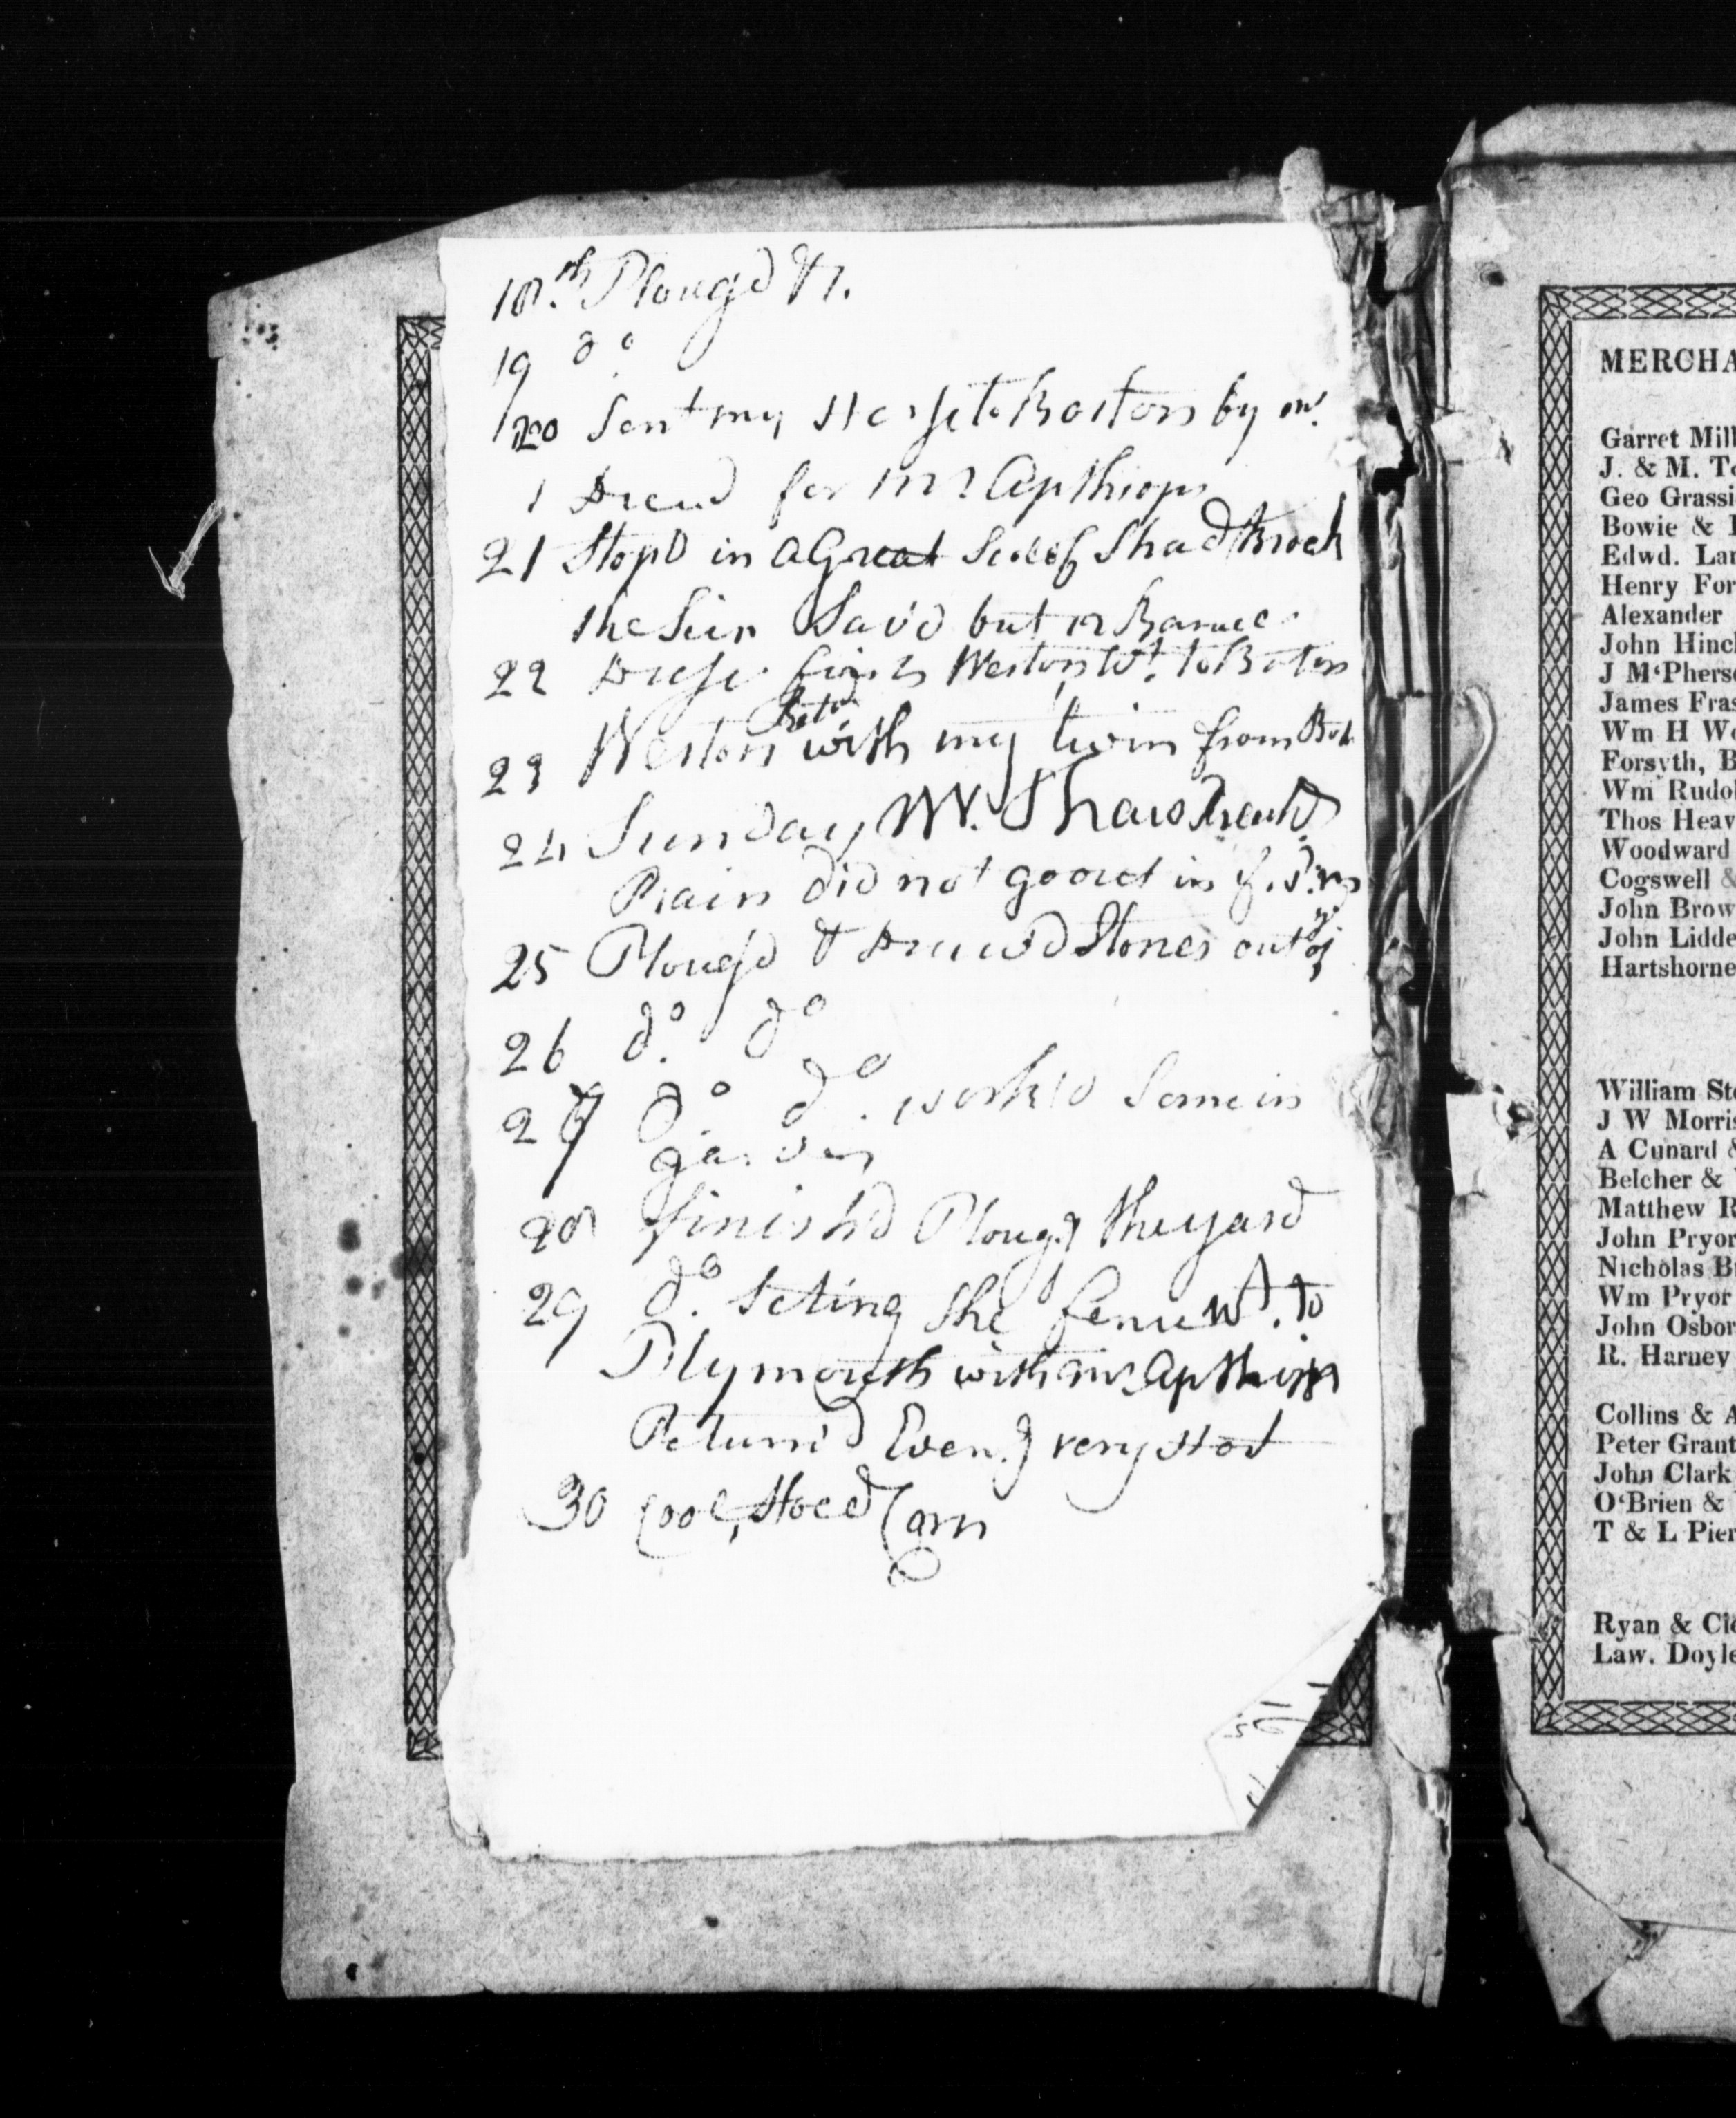 18.th Ploug'd &c.
19 do
20 Sent my Horse to Boston by mr.
for Mr Apthrop
21 Stopd in a Great Scool of Shad Broch
the Sein Sav'd but 12 Barrels
22 Weston Wt. to Boston
23 Weston Retd with my twin from Bost
24 Sunday W. Shaw
Rain did not go out in
25 Plough'd & Draw'd Stones out of
26 do. do
27 do. do. work'd Some in
garden
28 finish'd Ploug.g the yard
29 do. Seting the fence Wt. to
Plymouth with mr Apthrop
Return'd Even.g very Hot
30 Cool, Hoed Corn
MERCHA
Garret Mill
J. & M. To
Geo Grassi
Bowie &
Edwd. Lar
Henry For
Alexander
John Hincl
J M‘Pherso
James Fras
Wm H Wo
Forsyth, B
Wm Rudol
Thos Heav
Woodward
Cogswell &
John Brow
John Lidde
Hartshorne
William Ste
J W Morris
A Cunard &
Belcher &
Matthew R
John Pryor
Nicholas Br
Wm Pryor
John Osbor
R. Harney
Collins & A
Peter Grant
John Clark
O‘Brien &
T & L Pier
Ryan & Cle
Law. Doyle